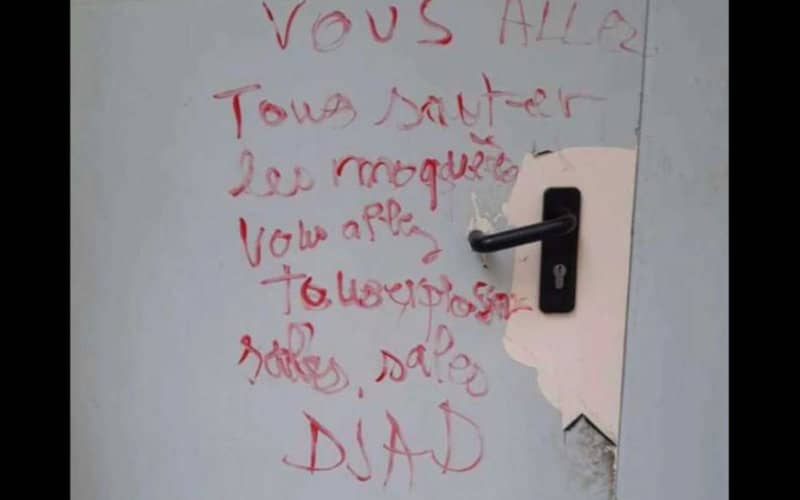 VOUS ALLEZ
Tous sauter
les moquées
vous allez
tous exploser
sales, sales
DJAD